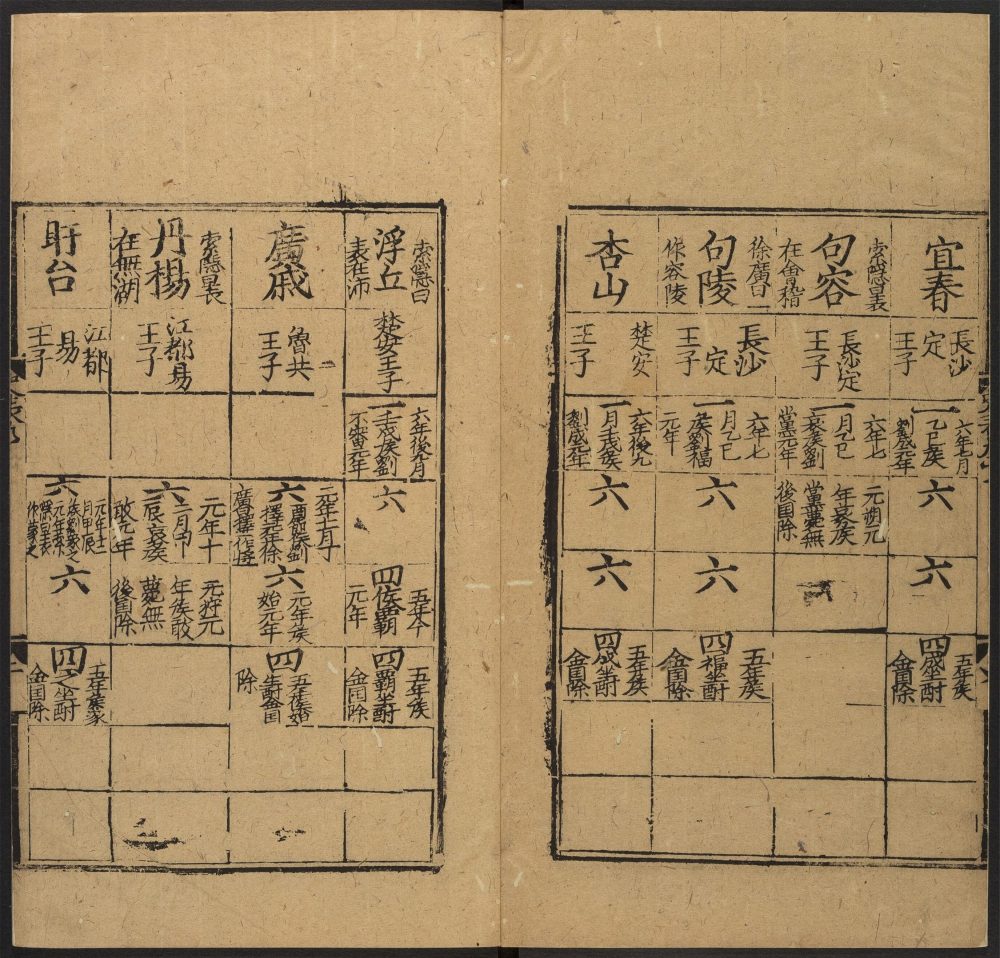 宜春
長沙
定
王子
六年七月
一乙巳侯
劉成元年
六
六
五年侯
四成坐酎
金国除
索隱曰表
句容
在會稽
長沙定
王子
六年七
一月乙巳
哀侯劉
黨元年
元朔元
年哀侯
黨薨無
後国除
徐廣曰一
句陵
作容陵
長沙
定
王子
六年七
月乙巳
一侯劉福
元年
六
六
五年侯
四福坐酎
金国除
杏山
楚安
王子
六年後九
一月壬戌侯
劉成元年
六
六
五年侯
四成坐酎
金国除
索隱曰
浮丘
表在沛
楚安王子
六年後九月
一壬戌侯劉
不審元年
六
五年今
四侯霸
元年
五年侯
四霸坐酎
金国除
廣戚
魯共
王子
元年十月丁
六酉節侯劉
擇元年徐
廣曰擇一作將
六元年侯
始元年
五年侯始
四坐酎金国
除
索隱曰表
丹楊
在無湖
江都易
王子
元年十
六二月甲
辰哀侯
敢元年
元狩元
年侯敢
薨無
後国除
盱台
江都
易
王子
六
元年十二
月甲辰
侯劉象之
元年索
隱曰表
作蒙之
六
五年侯象
四之坐酎
金国除